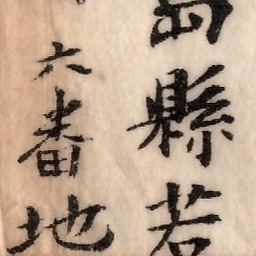 縣若
六番地